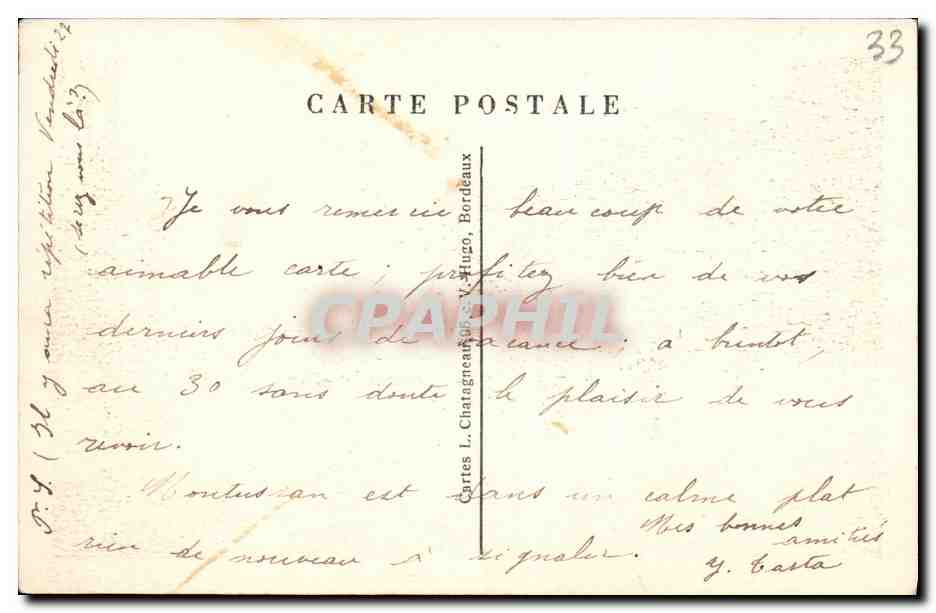 33
CARTE POSTALE
Je vous remercie beaucoup de votre
aimable carte ; profitez bien de vos
derniers jours de vacance ; à bientôt,
au 30 sans doute le plaisir de vous
revoir.
Montussan est dans un calme plat
rien de nouveau à signaler.
Mes bonnes
amitiés
Y. Casta
P.S. (Il y aura répétition Vendredi 27
(serez vous là ?)
Cartes L. Chatagneau, 105, c. V.-Hugo, Bordeaux
CPAPHIL